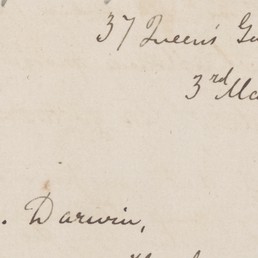 37 Queen's Ga
3rd Ma
. Darwin,